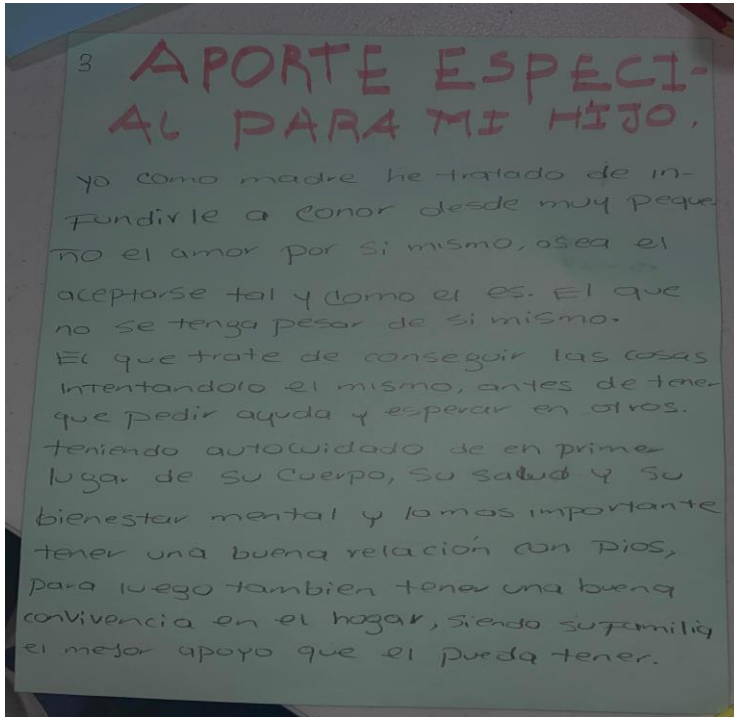 3 APORTE ESPECI-
AL PARA MI HIJO.
yo como madre he tratado de in-
Fundirle a conor desde muy peque
ño el amor por si mismo, osea el
aceptarse tal y como el es. El que
no se tenga pesar de si mismo.
El que trate de conseguir las cosas
intentandolo el mismo, antes de tener
que pedir ayuda y esperar en otros.
teniendo autocuidado de en primer
lugar de su cuerpo, su salud y su
bienestar mental y lo mas importante
tener una buena relación con Dios,
para luego tambien tener una buena
convivencia en el hogar, siendo su familia
el mejor apoyo que el pueda tener.